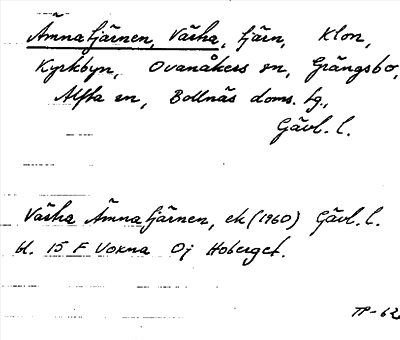 Ämnatjärnen, Västra, tjärn, Klon,
Kyrkbyn, Ovanåkers sn, Grängsbo,
Alfta sn, Bollnäs doms. tg.,
Gävl. l.
Västra Ämnatjärnen, ek (1960) Gävl. l.
bl. 15 F Voxna 0j Hoberget.
TP-62